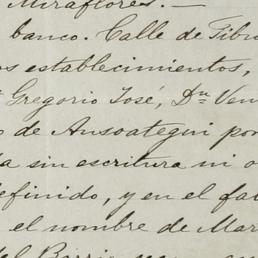 Miraflores. —
banco. Calle de Tibur
os establecimientos,
Gregorio José, Dn Ven
o de Ansoategui por
a sin escritura ni o
efinido, y en el fal
el nombre de Mar
del Barrio